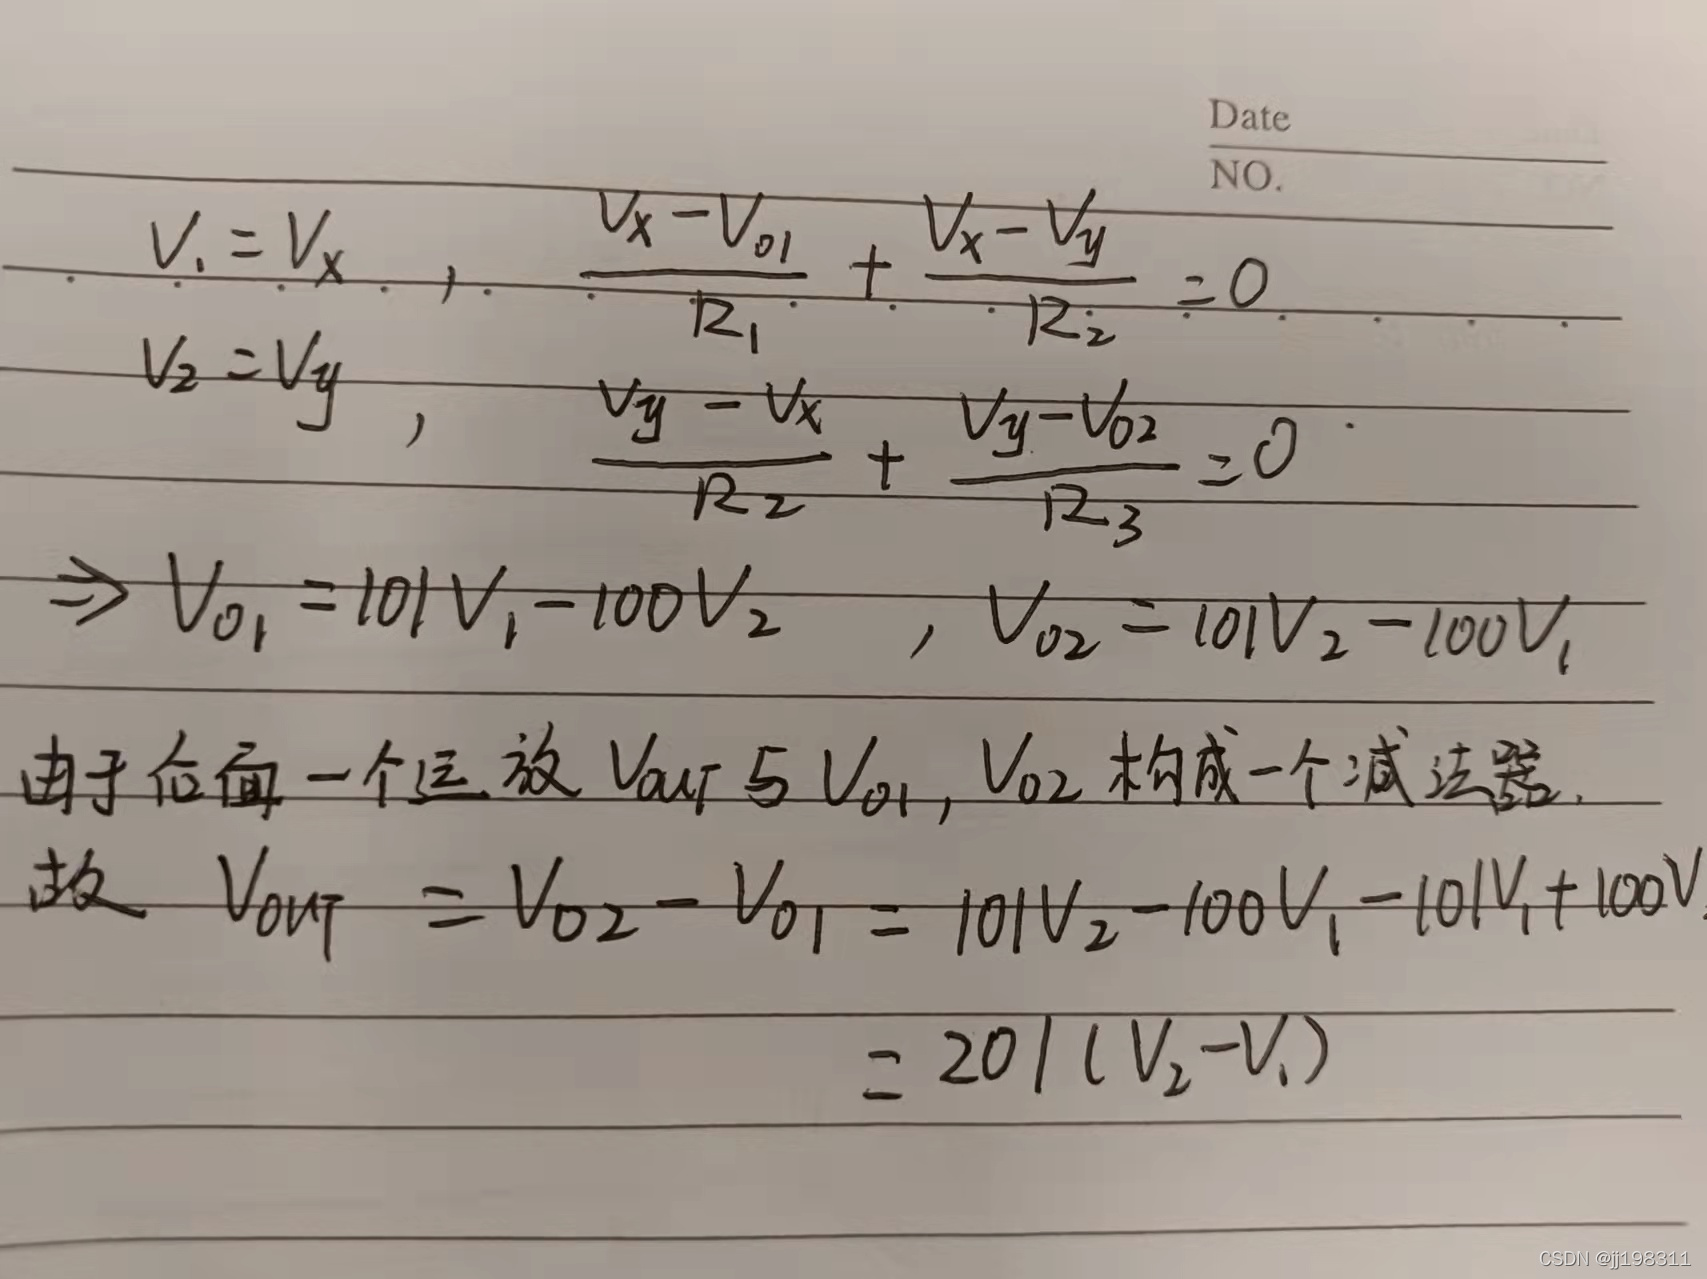 Date
NO.
V₁ = Vx , (Vx - V₀₁)/R₁ + (Vx - Vy)/R₂ = 0
V₂ = Vy , (Vy - Vx)/R₂ + (Vy - V₀₂)/R₃ = 0
⇒ V₀₁ = 101V₁ - 100V₂ , V₀₂ = 101V₂ - 100V₁
由于后面一个运放 VOUT 与 V₀₁, V₀₂ 构成一个减法器.
故 VOUT = V₀₂ - V₀₁ = 101V₂ - 100V₁ - 101V₁ + 100V
= 201(V₂ - V₁)
CSDN @jj198311